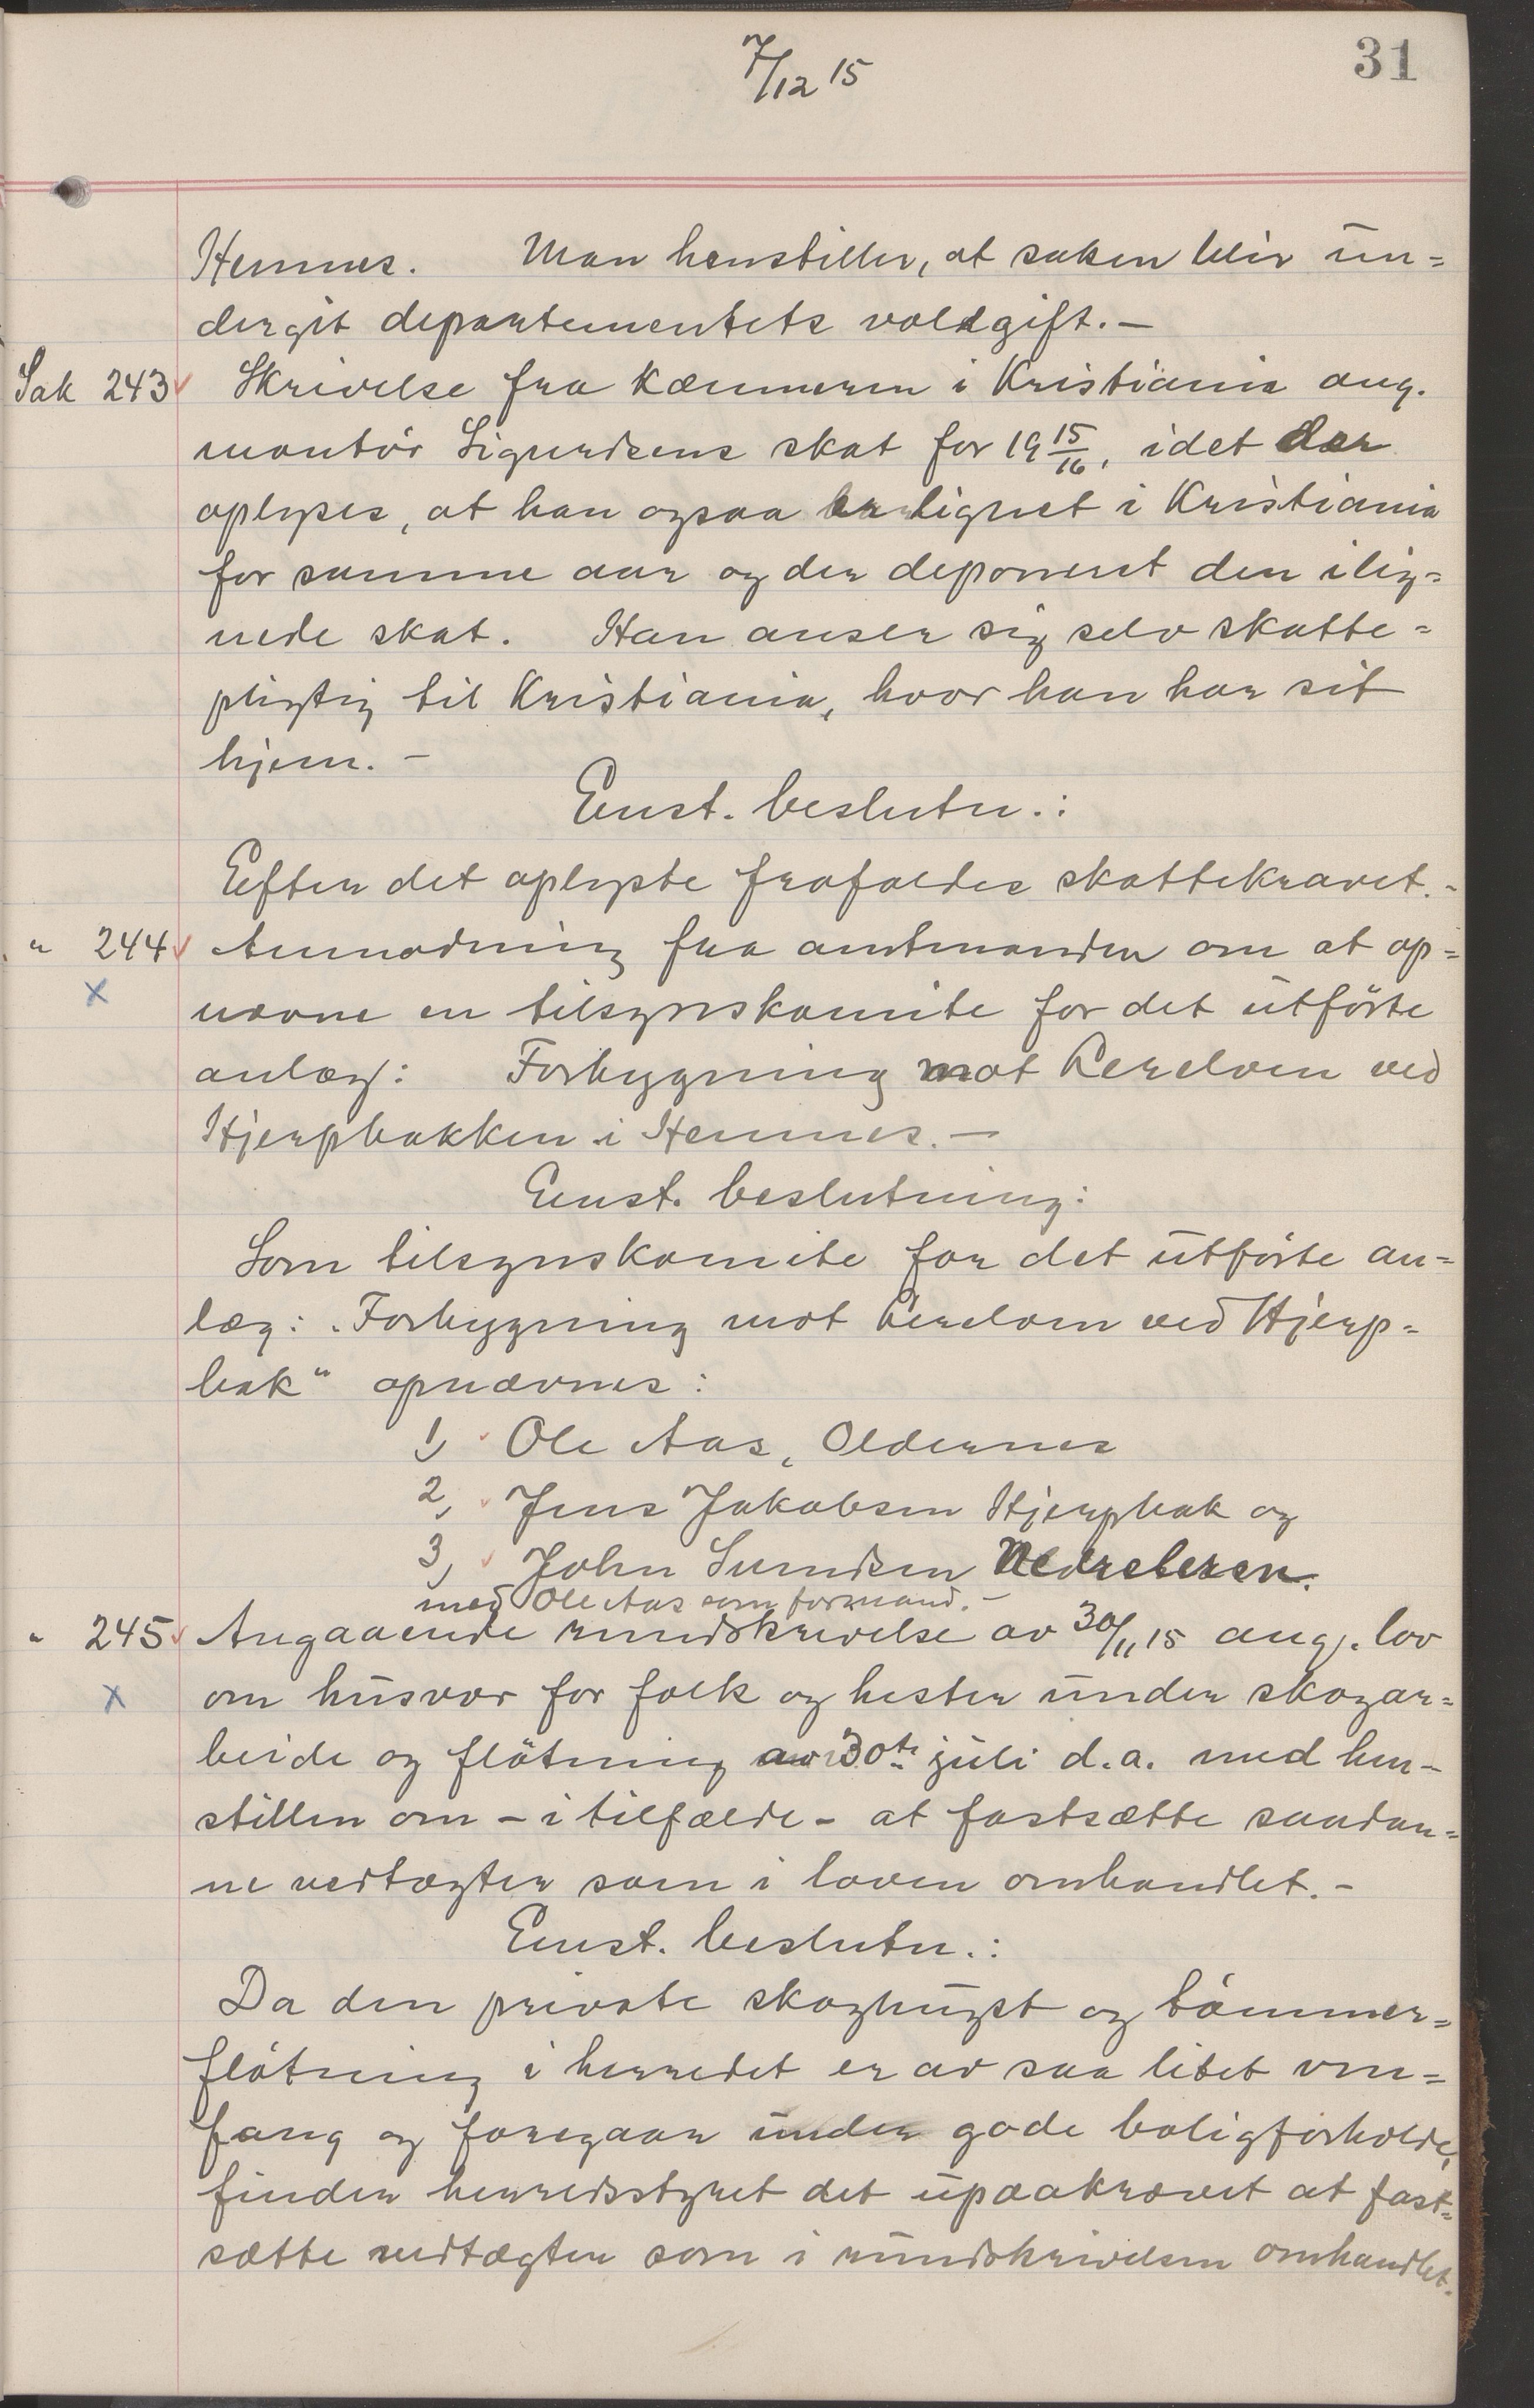 7/12 15
31
Hemnes. Man henstiller, at saken blir un=
dergit departementets voldgift.—
Sak 243 Skrivelse fra kæmneren i Kristiania ang.
montör Sigurdsens skat for 19 15/16, idet der
oplyses, at han ogsaa er lignet i Kristiania
for samme aar og der deponert den ilig=
nede skat. Han anser sig selv skatte=
pligtig til Kristiania, hvor han har sit
hjem.—
Enst. beslutn.:
Efter det oplyste frafaldes skattekravet.-
" 244 Anmodning fra amtmanden om at op=
nævne en tilsynskomite for det utförte
anlæg: Forbygning mot Lerelven ved
Hjerpbakken i Hemnes.—
Enst. beslutning:
Som tilsynskomite for det utförte an=
læg: "Forbygning mot Lerelven ved Hjerp=
bak" opnævnes:
1, Ole Aas, Oldernes
2, Jens Jakobsen Hjerpbak og
3, John Sundsen Nedreleren.
med Ole Aas som formand.—
" 245 Angaaende rundskrivelse av 30/11 15 ang. lov
om husvær for folk og hester under skogar=
beide og flötning av 30te juli d.a. med hen-
stillen om - i tilfælde - at fastsætte saadan=
ne vedtægter som i loven omhandlet.-
Enst. beslutn.:
Da den private skoghugst og tömmer=
flötning i herredet er av saa litet om=
fang og foregaar under gode boligforholde,
finder herredsstyret det upaakrævet at fast=
sætte vedtægter som i rundskrivelsen omhandlet.